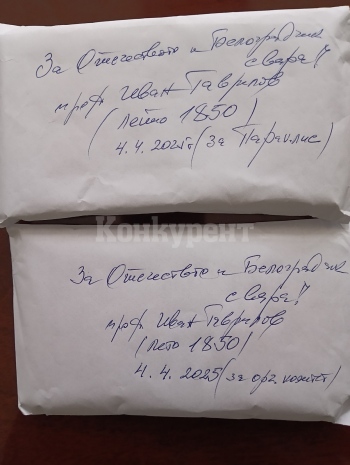 За Отечеството и Белоградчик
с вяра!
проф. Иван Гаврилов
(лято 1850)
4.4.2025г (за Параклис)
Конкурент
За Отечеството и Белоградчик
с вяра!
проф. Иван Гаврилов
(лято 1850)
4.4.2025 (за орг. комитет)